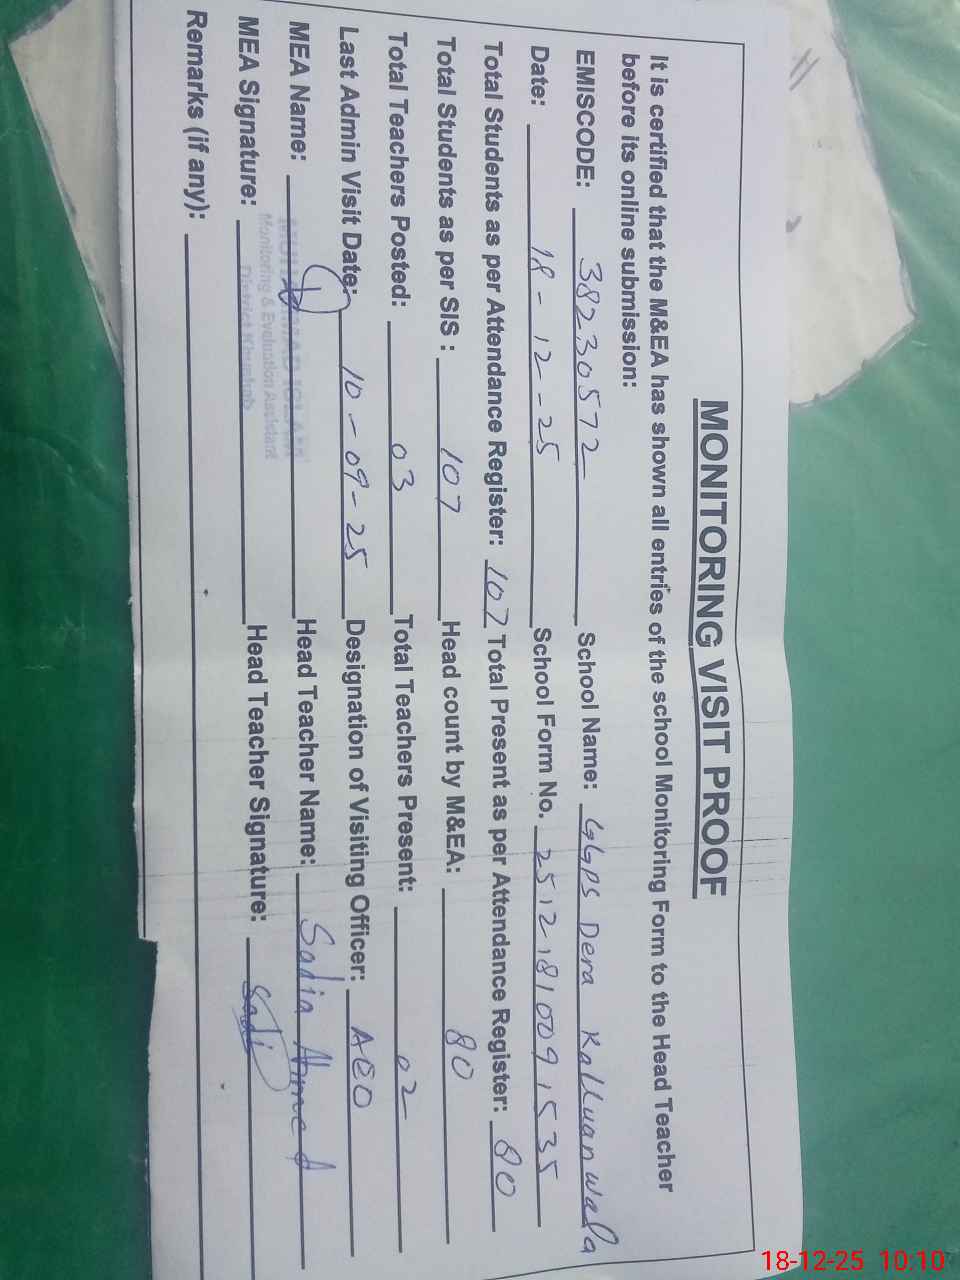 MONITORING VISIT PROOF
It is certified that the M&EA has shown all entries of the school Monitoring Form to the Head Teacher
before its online submission:
EMISCODE: 38230572 School Name: GGPS Dera Kalluanwala
Date: 18-12-25 School Form No. 25121810091535
Total Students as per Attendance Register: 107 Total Present as per Attendance Register: 80
Total Students as per SIS : 107 Head count by M&EA: 80
Total Teachers Posted: 03 Total Teachers Present: 02
Last Admin Visit Date: 10-09-25 Designation of Visiting Officer: AEO
MEA Name: MUHAMMAD Head Teacher Name: Sadia Ahmed
Monitoring & Evaluation Assistant
MEA Signature: District Khushab Head Teacher Signature: Sadi
Remarks (if any):
18-12-25 10:10